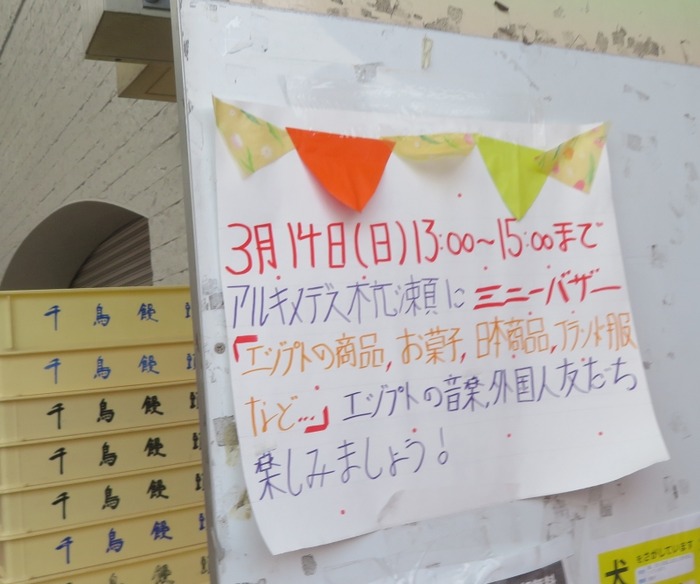 3月14日(日)13:00~15:00まで
アルキメデス杭瀬に ミニーバザー
「エジプトの商品, お菓子, 日本商品, ブランド服
など...」 エジプトの音楽, 外国人友だち
楽しみましょう!
千鳥饅
千鳥饅
千鳥饅
千鳥饅
千鳥饅
千鳥饅
千鳥饅
犬
をさがしています